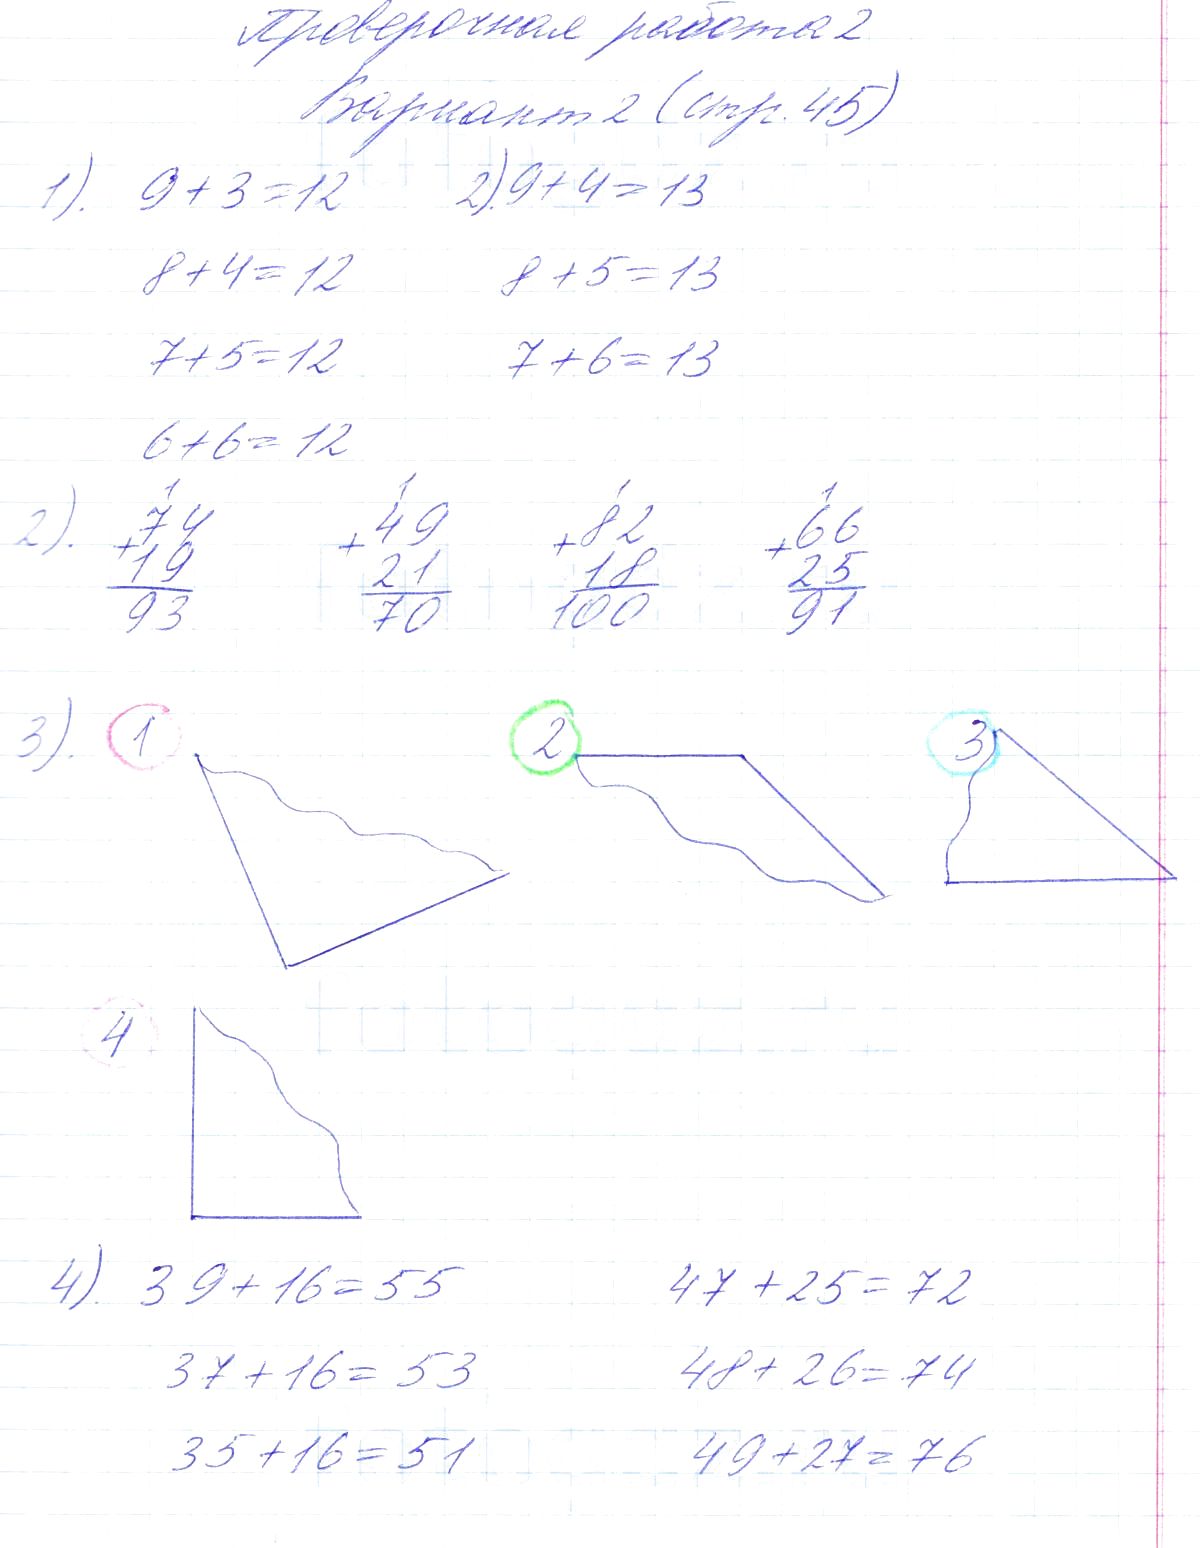 Проверочная работа 2
Вариант 2 (стр. 45)
1). 9+3=12 2). 9+4=13
8+4=12 8+5=13
7+5=12 7+6=13
6+6=12
2). 1 1 1 1
74 49 82 66
+19 +21 +18 +25
93 70 100 91
3). 1 2 3
4
4). 39+16=55 47+25=72
37+16=53 48+26=74
35+16=51 49+27=76